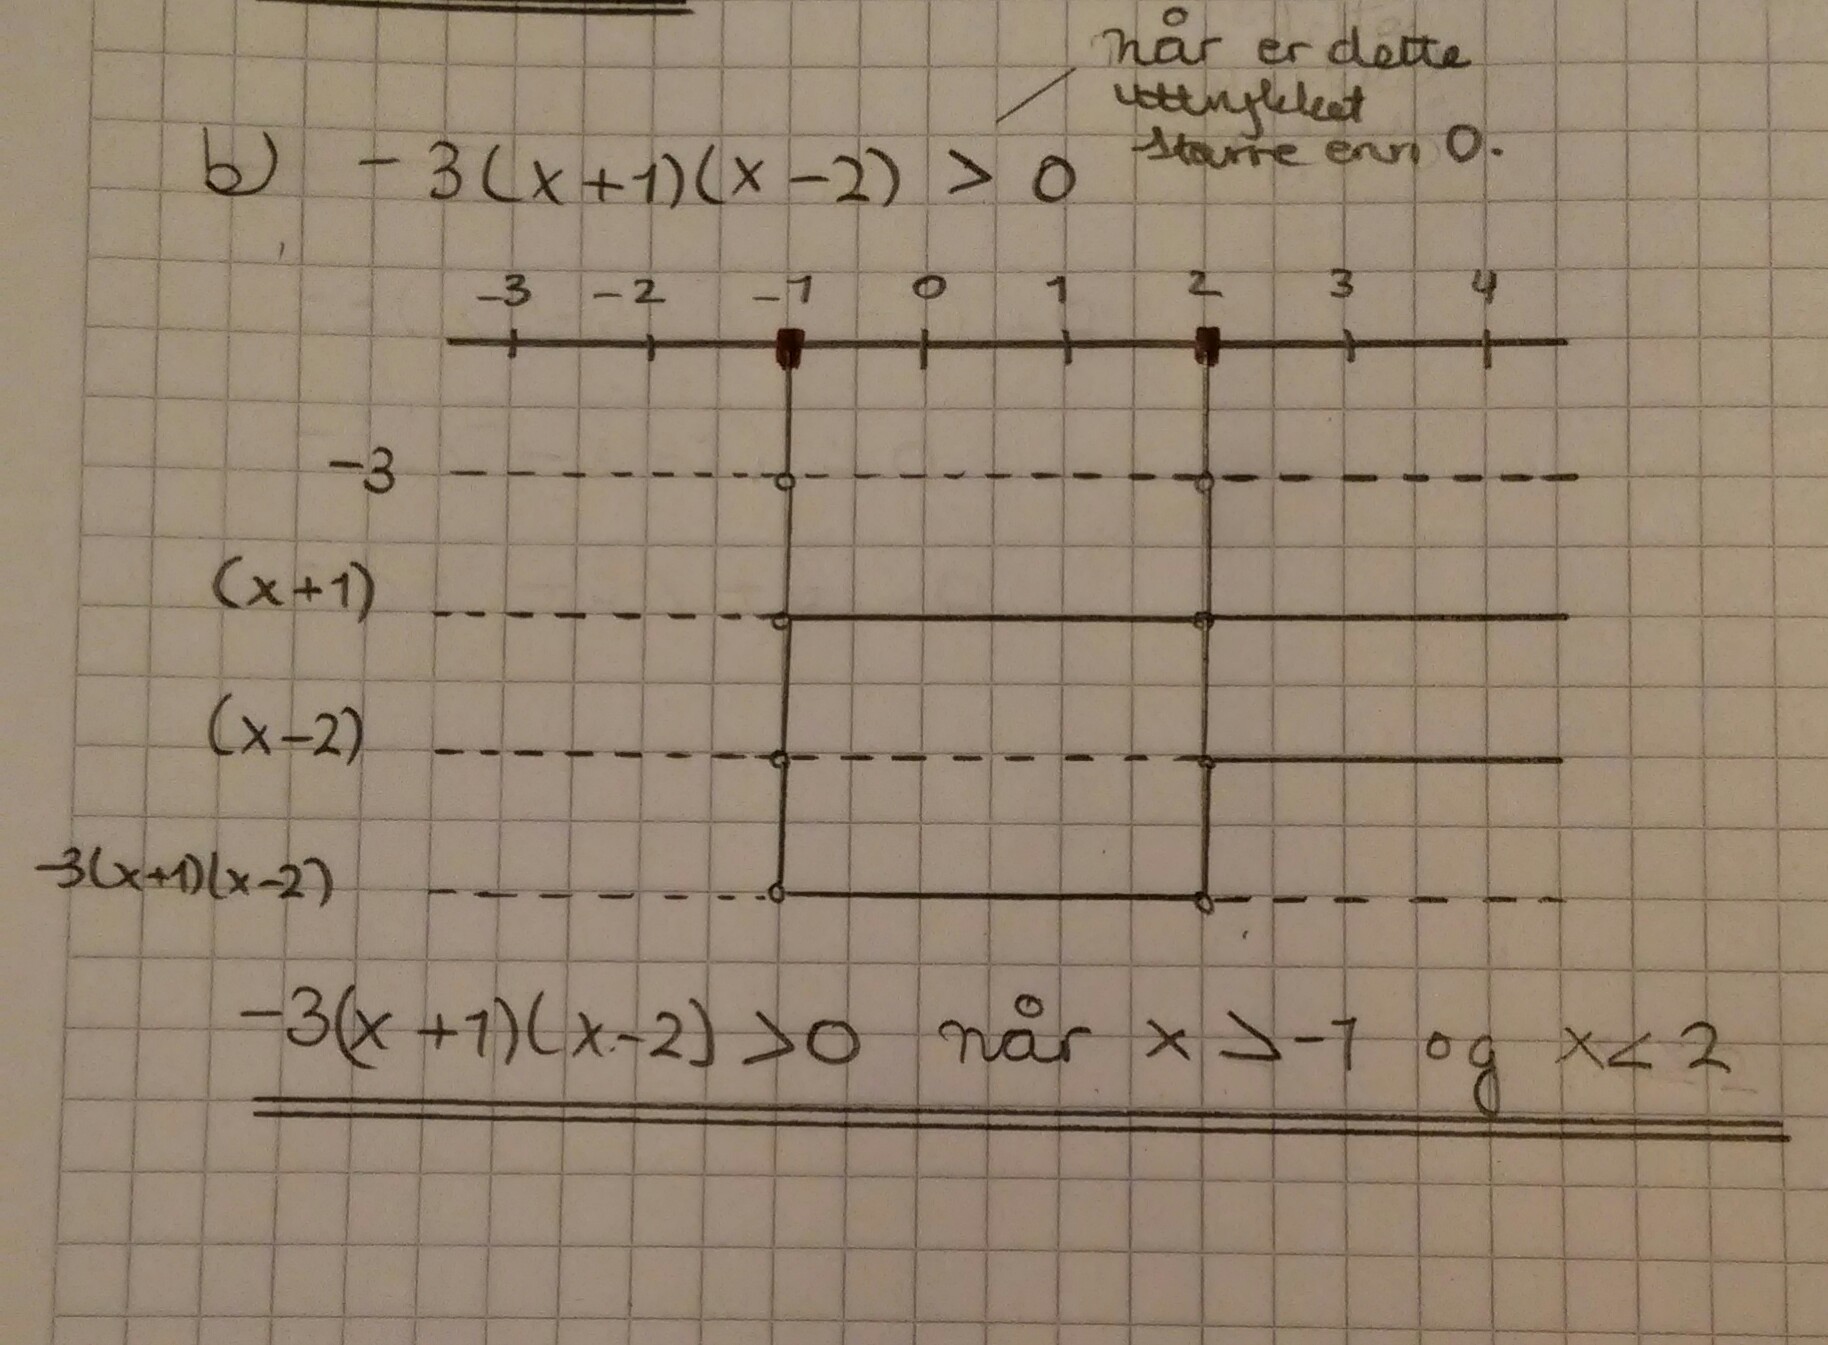 når er dette
uttrykket
større enn 0.
b) -3(x+1)(x-2) > 0
-3 -2 -1 0 1 2 3 4
-3
(x+1)
(x-2)
-3(x+1)(x-2)
-3(x+1)(x-2) >0 når x >-1 og x< 2